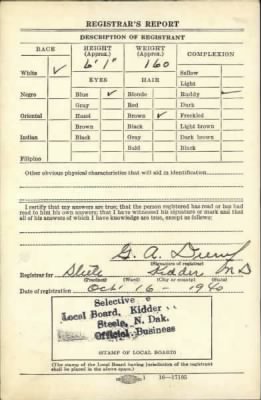 REGISTRAR'S REPORT
DESCRIPTION OF REGISTRANT
RACE HEIGHT (Approx.) WEIGHT (Approx.) COMPLEXION
6' 1" 160
White ✓ Sallow
EYES HAIR Light
Negro Blue ✓ Blonde Ruddy ✓
Gray Red Dark
Oriental Hazel Brown ✓ Freckled
Brown Black Light brown
Indian Black Gray Dark brown
Bald Black
Filipino
Other obvious physical characteristics that will aid in identification
I certify that my answers are true; that the person registered has read or has had
read to him his own answers; that I have witnessed his signature or mark and that
all of his answers of which I have knowledge are true, except as follows:
G. A.
(Signature of registrar)
Registrar for Steele Kidder N D
(Precinct) (Ward) (City or county) (State)
Date of registration Oct. 16 - 1940
Selective
Local Board, Kidder
Steele, N. Dak.
Official Business
(STAMP OF LOCAL BOARD)
(The stamp of the Local Board having jurisdiction of the registrant
shall be placed in the above space.)
16—17105